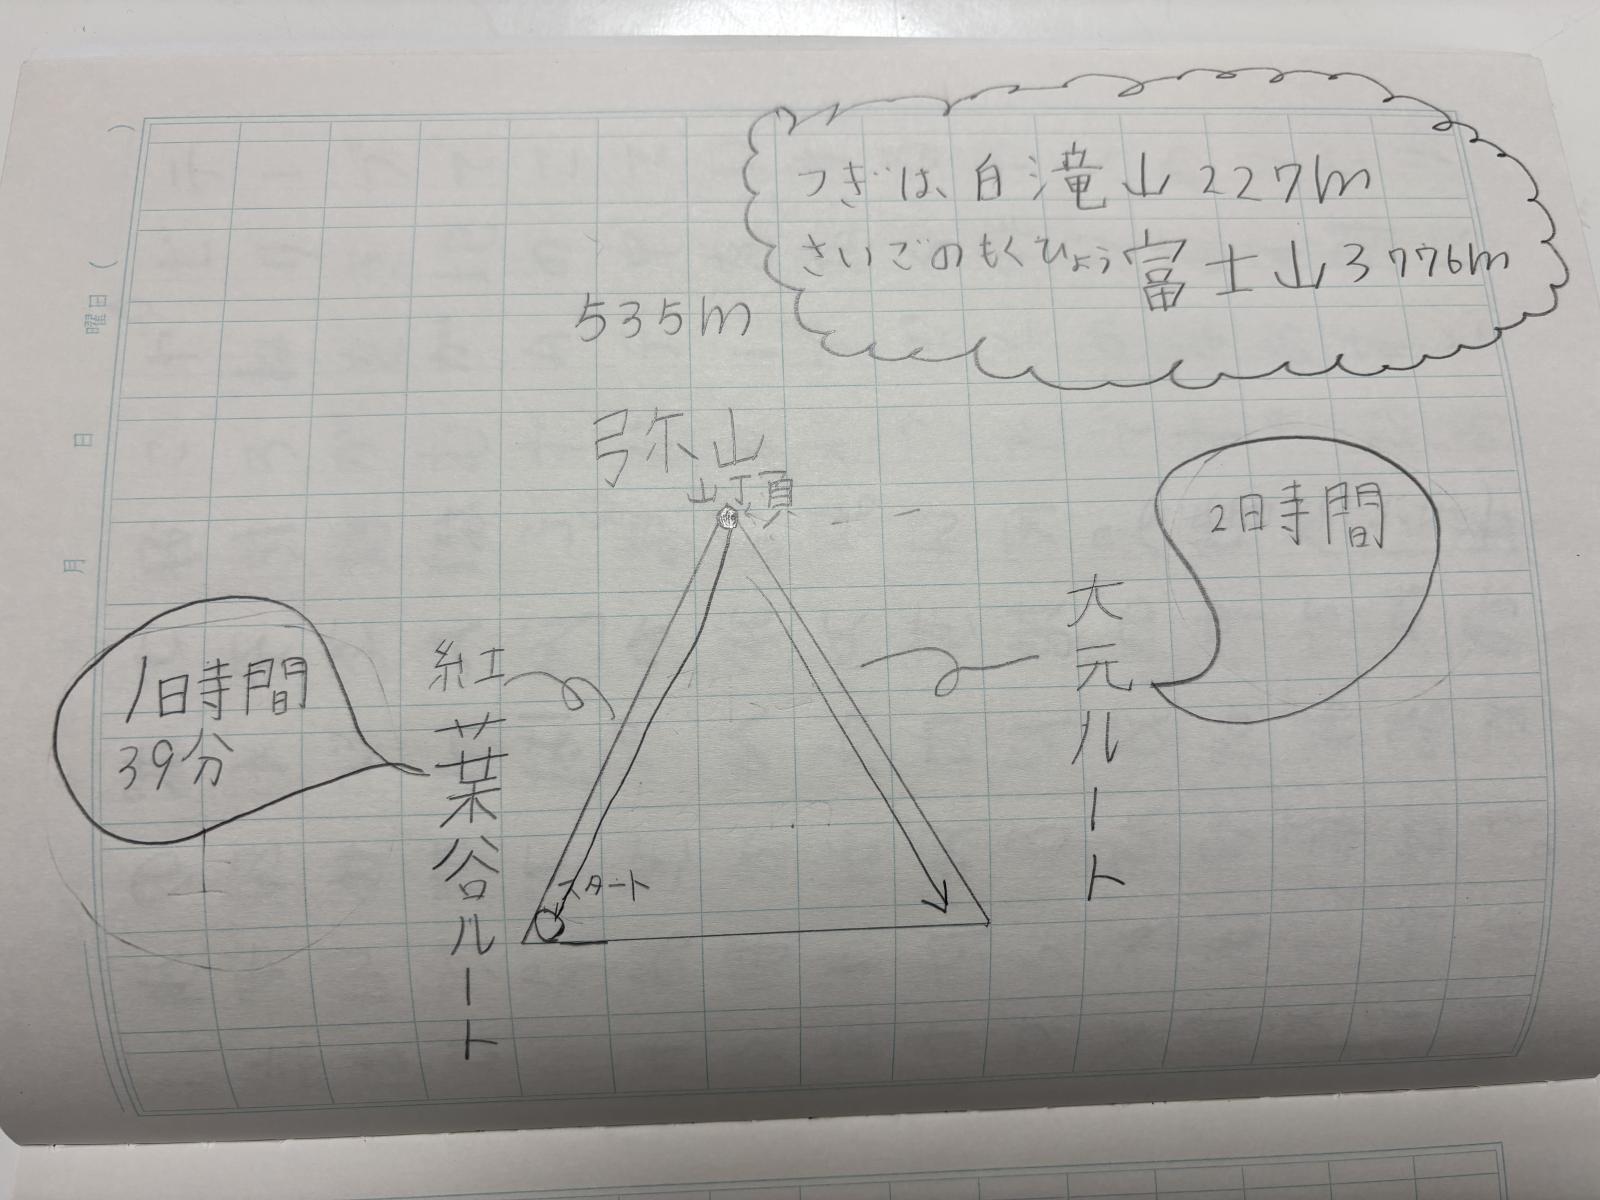 つぎは、白滝山227m
さいごのもくひょう富士山3776m
535m
弥山
山頂
2時間
大元ルート
1時間
39分
紅葉谷ルート
スタート
日曜
日
月